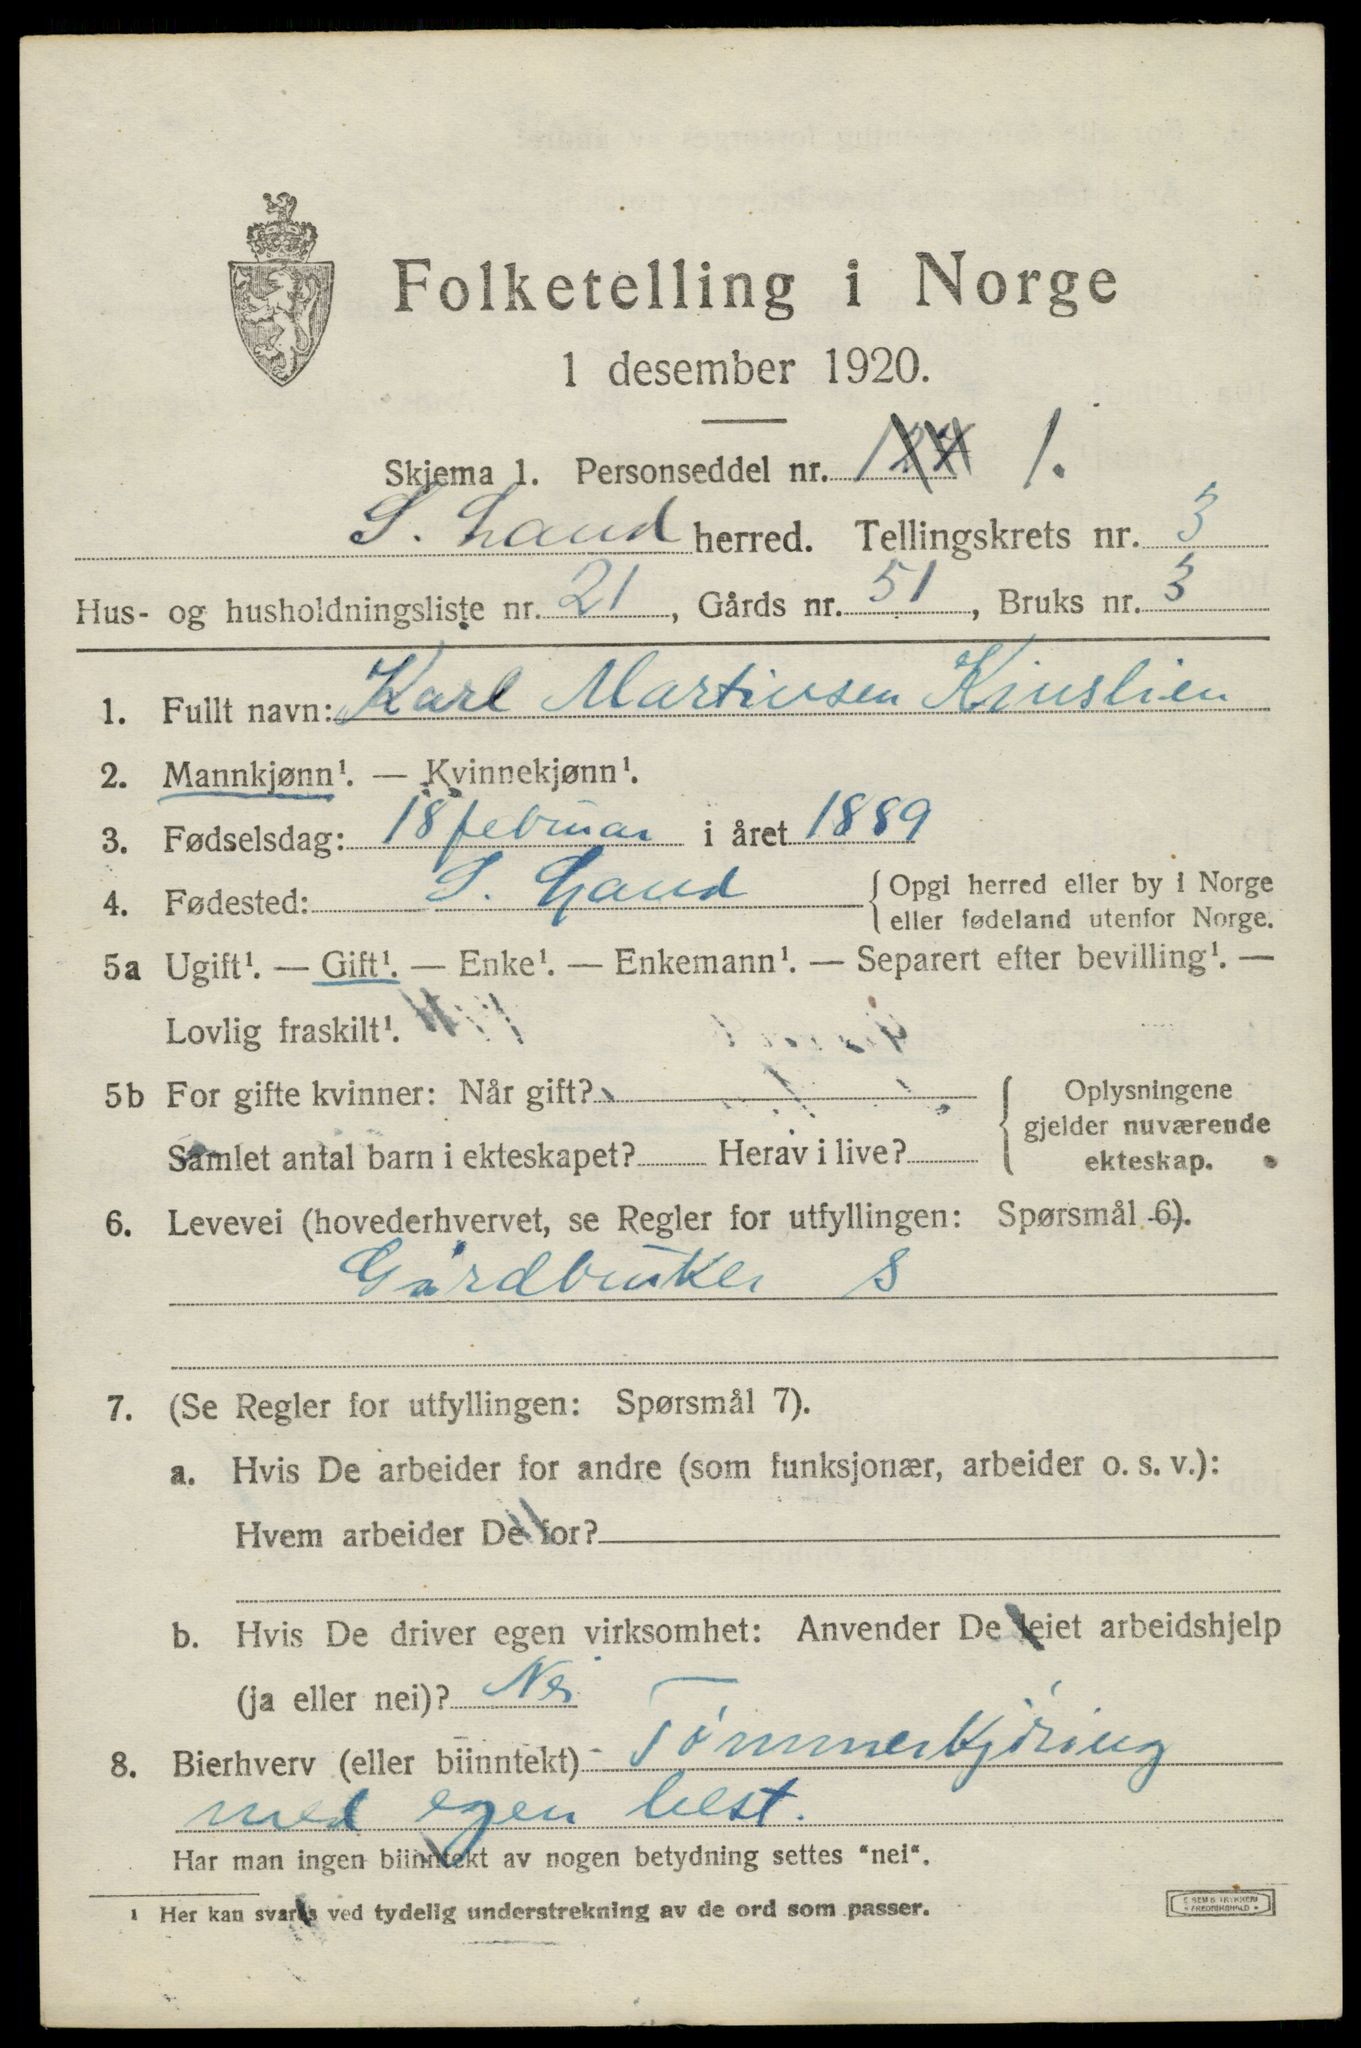 Folketelling i Norge
1 desember 1920.
Skjema 1. Personseddel nr. 124 1.
S. Land herred. Tellingskrets nr. 3
Hus- og husholdningsliste nr. 21, Gårds nr. 51, Bruks nr. 3
1. Fullt navn: Karl Martinsen Kinslien
2. Mannkjønn¹. — Kvinnekjønn¹.
3. Fødselsdag: 18 februar i året 1889
4. Fødested: S. Land { Opgi herred eller by i Norge
eller fødeland utenfor Norge.
5a Ugift¹. — Gift¹. — Enke¹. — Enkemann¹. — Separert efter bevilling¹. —
Lovlig fraskilt¹.
5b For gifte kvinner: Når gift? { Oplysningene
gjelder nuværende
Samlet antal barn i ekteskapet? Herav i live? ekteskap.
6. Levevei (hovederhvervet, se Regler for utfyllingen: Spørsmål 6).
Gårdbruker S
7. (Se Regler for utfyllingen: Spørsmål 7).
a. Hvis De arbeider for andre (som funksjonær, arbeider o. s. v.):
Hvem arbeider De for?
b. Hvis De driver egen virksomhet: Anvender De leiet arbeidshjelp
(ja eller nei)? Nei
8. Bierhverv (eller biinntekt) Tømmerkjøring
med egen hest.
Har man ingen biinntekt av nogen betydning settes "nei".
¹ Her kan svares ved tydelig understrekning av de ord som passer.
E SEM'S TRYKKERI
FREDRIKSHALD